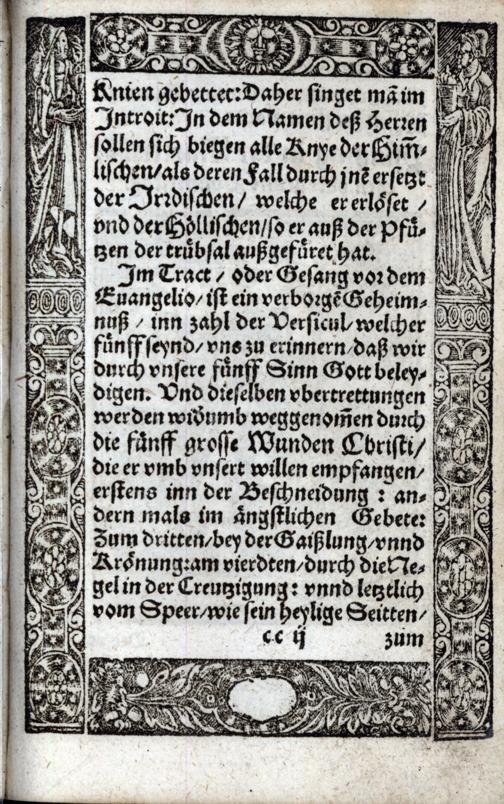 Knien gebettet: Daher singet mā im
Introit: In dem Namen deß Herren
sollen sich biegen alle Knye der Him̄-
lischen / als deren Fall durch jnē ersetzt
der Irꝛdischen / welche er erlöset /
vnd der Höllischen / so er auß der Pfü-
tzen der trübsal außgefüret hat.
Im Tract / oder Gesang vor dem
Euangelio / ist ein verborgē Geheim-
nuß / inn zahl der Versicul / welcher
fünff seynd / vns zu erinnern / daß wir
durch vnsere fünff Sinn Gott beley-
digen. Vnd dieselben vbertrettungen
werden widumb weggenom̄en durch
die fünff grosse Wunden Christi /
die er vmb vnsert willen empfangen /
erstens inn der Beschneidung : an-
dern mals im ängstlichen Gebete:
Zum dritten / bey der Gaißlung / vnnd
Krönung: am vierdten / durch die Ne-
gel in der Creutzigung : vnnd letztlich
vom Speer / wie sein heylige Seitten /
cc ij zum